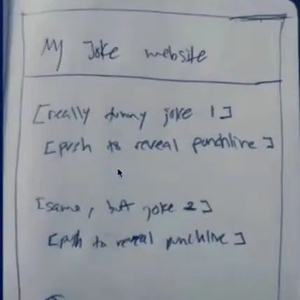 My Joke website
[really funny joke 1]
[push to reveal punchline]
[same, but joke 2]
[push to reveal punchline]